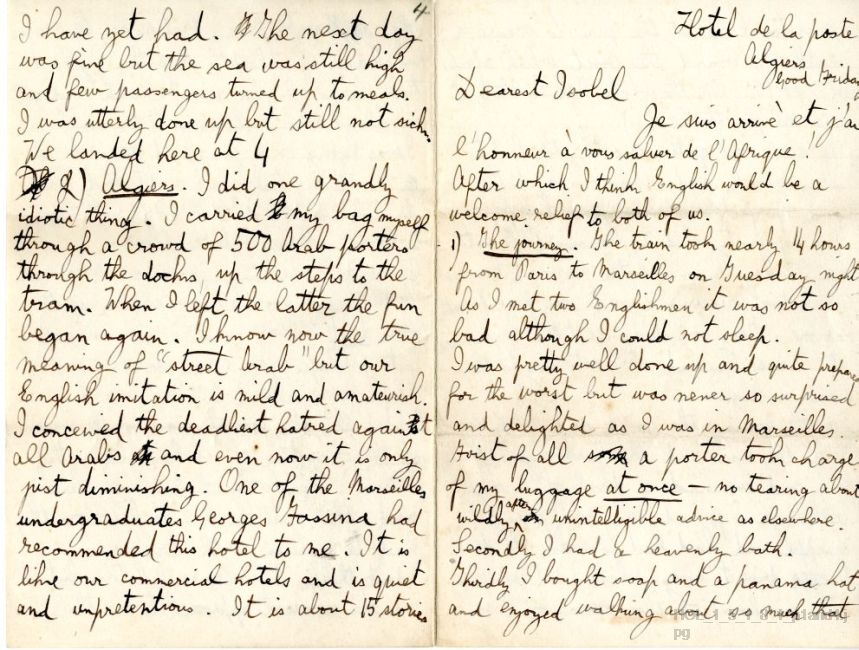 4
I have yet had. The next day
was fine but the sea was still high
and few passengers turned up to meals.
I was utterly done up but still not sick.
We landed here at 4
2) Algiers. I did one grandly
idiotic thing. I carried my bag myself
through a crowd of 500 Arab porters
through the docks, up the steps to the
tram. When I left the latter the fun
began again. I know now the true
meaning of "street Arab" but our
English imitation is mild and amateurish.
I conceived the deadliest hatred against
all Arabs and even now it is only
just diminishing. One of the Marseilles
undergraduates Georges Fassina had
recommended this hotel to me. It is
like our commercial hotels and is quiet
and unpretentious. It is about 15 stories
Hotel de la poste
Algiers
Good Friday
Dearest Isobel
Je suis arrivé et j'ai
l'honneur à vous saluer de l'Afrique!
After which I think English would be a
welcome relief to both of us.
1) The journey. The train took nearly 14 hours
from Paris to Marseilles on Tuesday night
As I met two Englishmen it was not so
bad although I could not sleep.
I was pretty well done up and quite prepared
for the worst but was never so surprised
and delighted as I was in Marseilles.
First of all a porter took charge
of my luggage at once – no tearing about
wildly after unintelligible advice as elsewhere.
Secondly I had a heavenly bath.
Thirdly I bought soap and a panama hat
and enjoyed walking about so much that